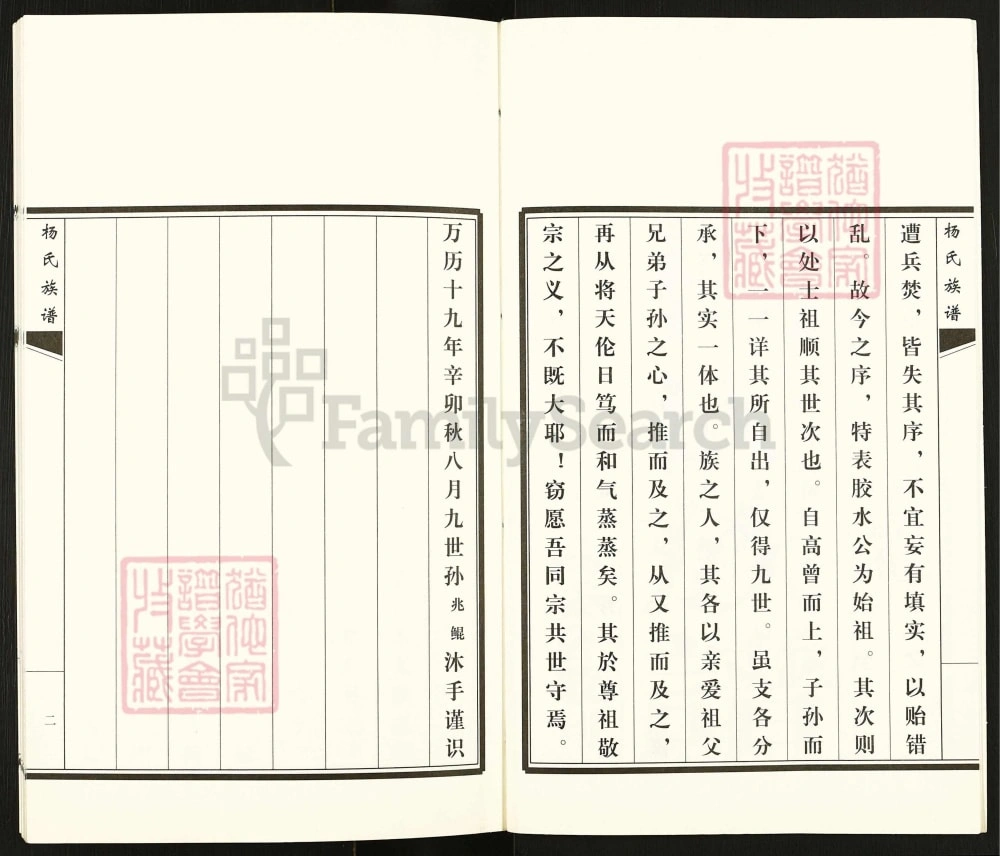 杨氏族谱
遭兵焚，皆失其序，不宜妄有填实，以贻错
乱。故今之序，特表胶水公为始祖。其次则
以处士祖顺其世次也。自高曾而上，子孙而
下，一一详其所自出，仅得九世。虽支各分
承，其实一体也。族之人，其各以亲爱祖父
兄弟子孙之心，推而及之，从又推而及之，
再从将天伦日笃而和气蒸蒸矣。其於尊祖敬
宗之义，不既大耶！窃愿吾同宗共世守焉。
万历十九年辛卯秋八月九世孙兆鲲沐手谨识
杨氏族谱
二
FamilySearch
譜學會
收藏
譜學會
收藏